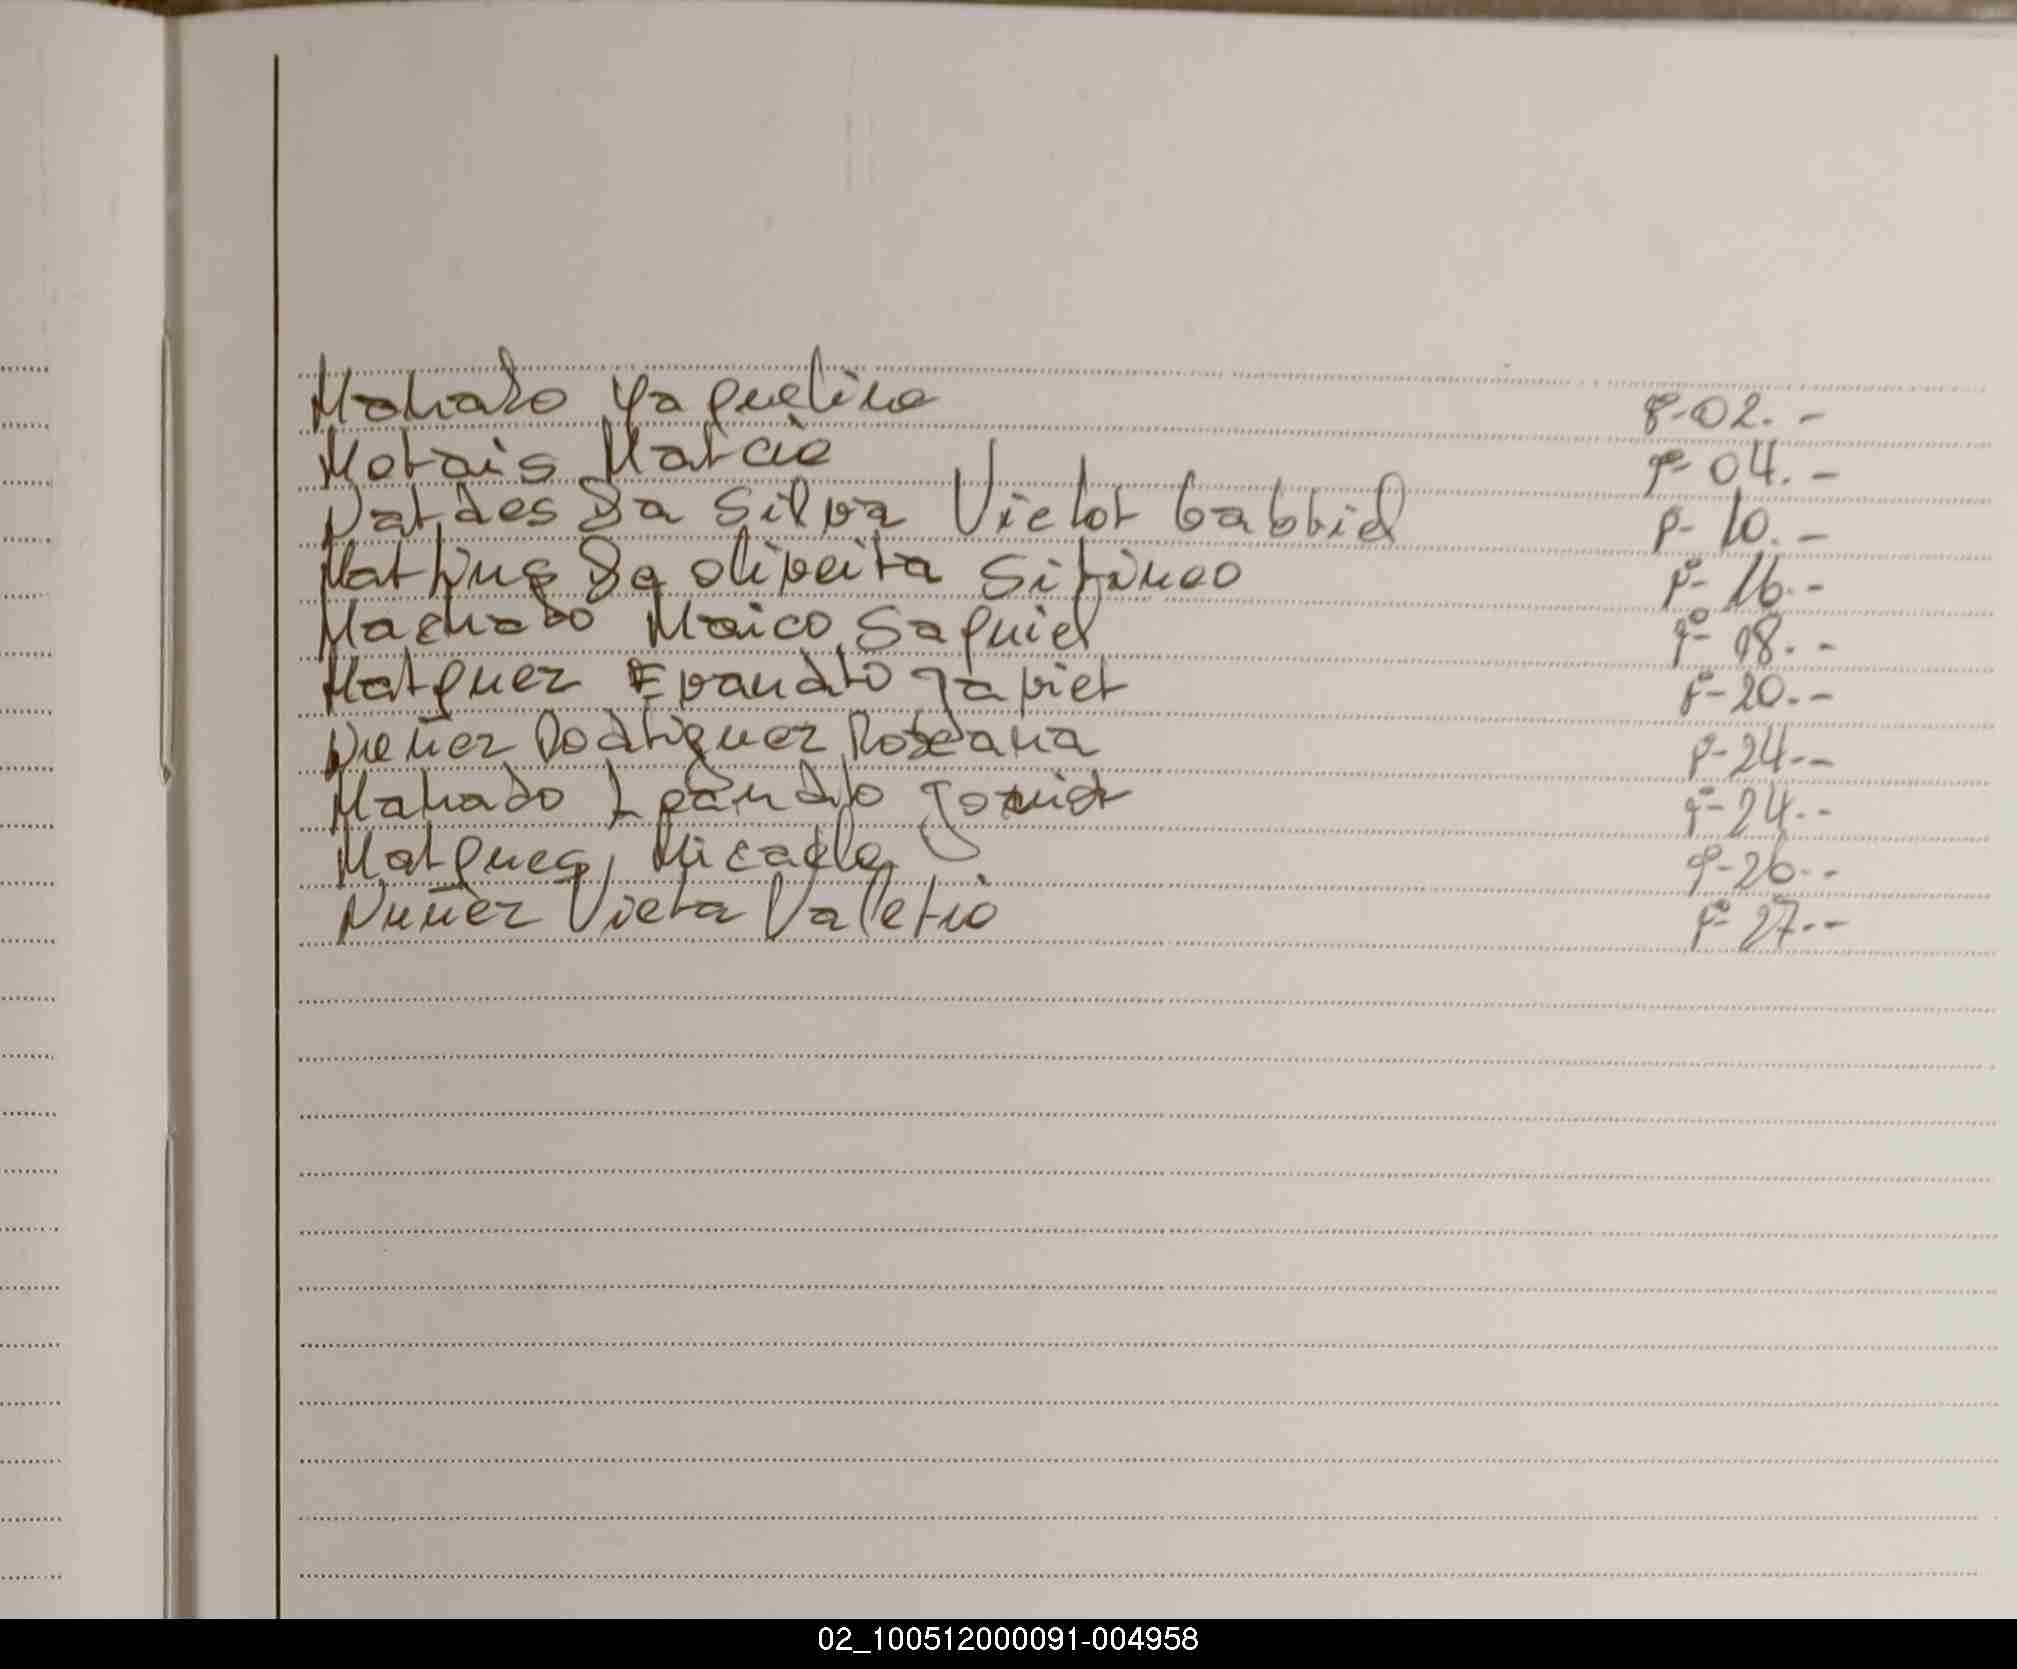 Mahado Yaquelina fº-02.-
Morais Marcio fº-04.-
Nardes Da Silva Victor Gabriel fº-10.-
Martins De Oliveira Sirineo fº-16.-
Machado Maico Saquiel fº-18.-
Marquez Evandro Javier fº-20.-
Nuñez Rodriguez Roseana fº-24.-
Mahado Leandro Junior fº-24.-
Marques, Micaela fº-26.-
Nuñez Viera Valeria fº-27.-
02_100512000091-004958